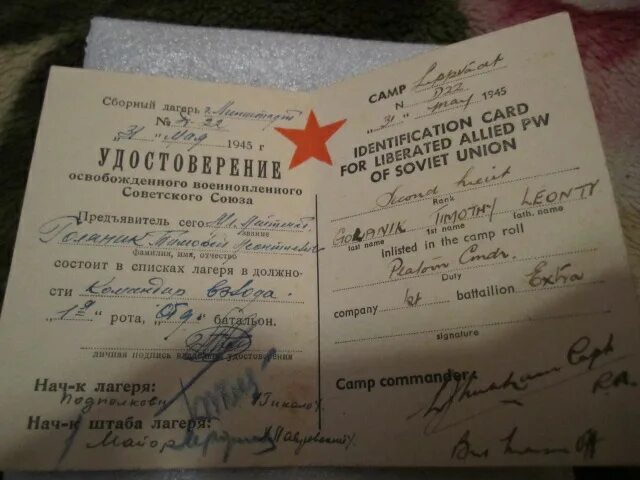 Сборный лагерь г.
№ 22
31 " Мая 1945 г
УДОСТОВЕРЕНИЕ
освобожденного военнопленного
Советского Союза
Предъявитель сего Мл.
звание
Голаник Тимофей Леонтиевич
фамилия, имя, отчество
состоит в списках лагеря в должно-
сти Командир взвода.
" 1я " рота, батальон.
личная подпись владельца удостоверения
Нач-к лагеря:
Подполковн
Нач-к штаба лагеря:
Майор
CAMP Lippstadt
N D22
" 31 " may 1945
IDENTIFICATION CARD
FOR LIBERATED ALLIED PW
OF SOVIET UNION
Second
Rank
GOLANIK TIMOTHY LEONTY
last name 1st name fath. name
Inlisted in the camp roll
Platoon Cmdr.
Duty
company 1st battaillion Extra
signature
Camp commander:
Capt
R.A.